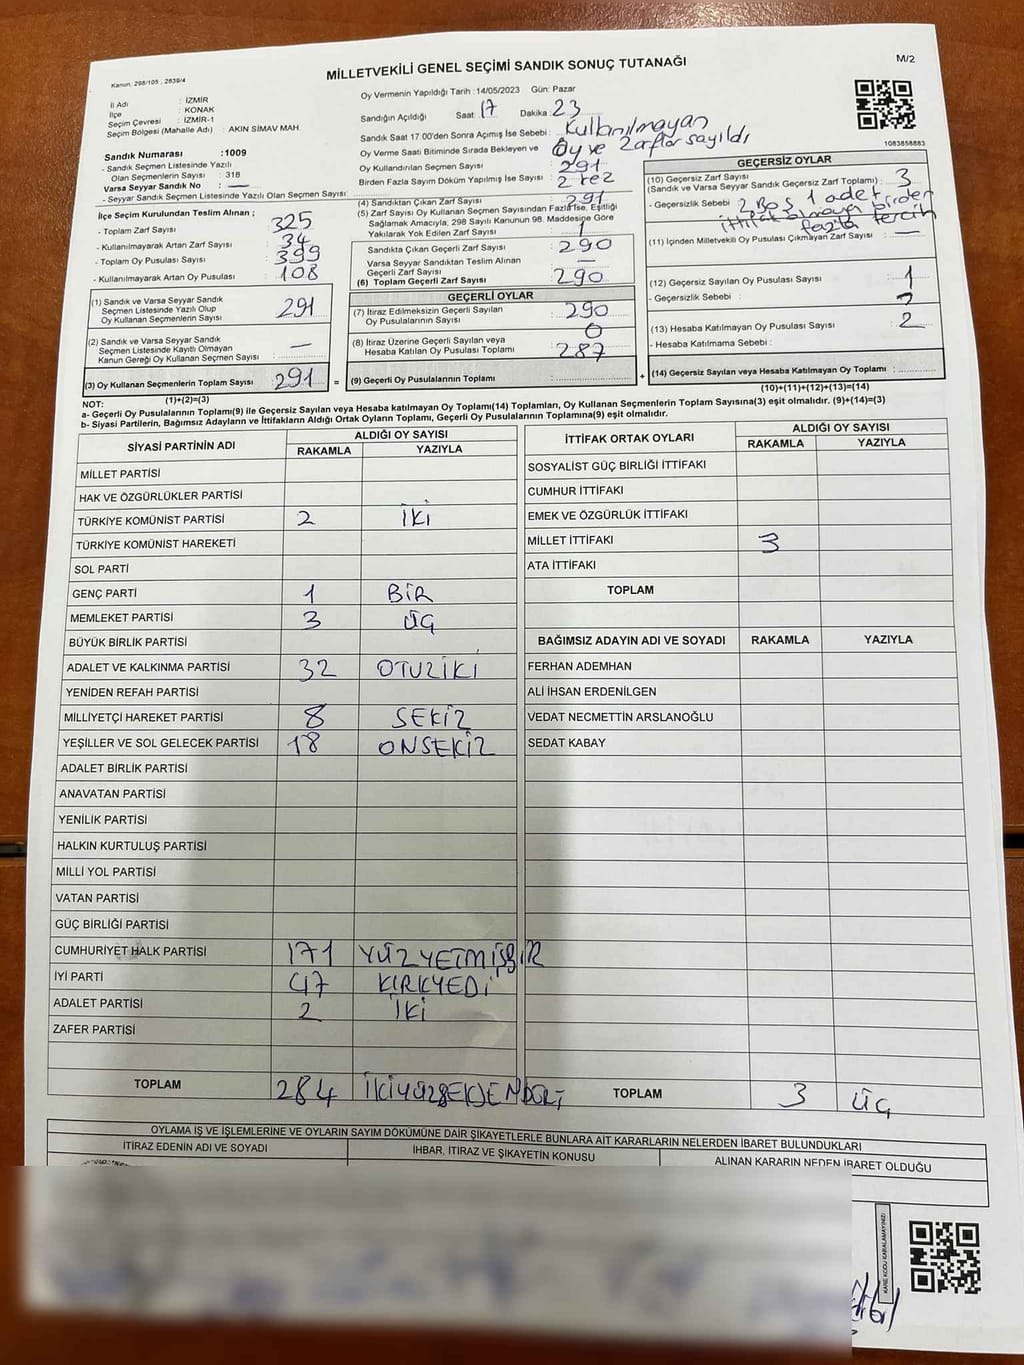 Kanun: 298/105 , 2839/4
MİLLETVEKİLİ GENEL SEÇİMİ SANDIK SONUÇ TUTANAĞI
M/2
İl Adı : İZMİR
İlçe : KONAK
Seçim Çevresi : İZMİR-1
Seçim Bölgesi (Mahalle Adı) : AKIN SİMAV MAH
Sandık Numarası :1009
- Sandık Seçmen Listesinde Yazılı
Olan Seçmenlerin Sayısı : 318
Varsa Seyyar Sandık No : —
- Seyyar Sandık Seçmen Listesinde Yazılı Olan Seçmen Sayısı:
İlçe Seçim Kurulundan Teslim Alınan ;
- Toplam Zarf Sayısı : 325
- Kullanılmayarak Artan Zarf Sayısı : 34
- Toplam Oy Pusulası Sayısı : 399
- Kullanılmayarak Artan Oy Pusulası : 108
(1) Sandık ve Varsa Seyyar Sandık
Seçmen Listesinde Yazılı Olup
Oy Kullanan Seçmenlerin Sayısı : 291
(2) Sandık ve Varsa Seyyar Sandık
Seçmen Listesinde Kayıtlı Olmayan
Kanun Gereği Oy Kullanan Seçmenlerin Sayısı : —
(3) Oy Kullanan Seçmenlerin Toplam Sayısı : 291 =
(1)+(2)=(3)
Oy Vermenin Yapıldığı Tarih : 14/05/2023 Gün: Pazar
Sandığın Açıldığı Saat : 17 Dakika : 23
Sandık Saat 17.00'den Sonra Açımış İse Sebebi : Kullanılmayan
Oy ve Zarflar sayıldı
Oy Verme Saati Bitiminde Sırada Bekleyen ve
Oy Kullandırılan Seçmen Sayısı : 291
Birden Fazla Sayım Döküm Yapılmış İse Sayısı : 2 kez
(4) Sandıktan Çıkan Zarf Sayısı : 291
(5) Zarf Sayısı Oy Kullanan Seçmen Sayısından Fazla İse, Eşitliği
Sağlamak Amacıyla; 298 Sayılı Kanunun 98. Maddesine Göre
Yakılarak Yok Edilen Zarf Sayısı : 1
Sandıkta Çıkan Geçerli Zarf Sayısı : 290
Varsa Seyyar Sandıktan Teslim Alınan
Geçerli Zarf Sayısı : —
(6) Toplam Geçerli Zarf Sayısı : 290
GEÇERLİ OYLAR
(7) İtiraz Edilmeksizin Geçerli Sayılan
Oy Pusulalarının Sayısı : 290
(8) İtiraz Üzerine Geçerli Sayılan veya : 0
Hesaba Katılan Oy Pusulası Toplamı : 287
(9) Geçerli Oy Pusulalarının Toplamı : +
1083858883
GEÇERSİZ OYLAR
(10) Geçersiz Zarf Sayısı
(Sandık ve Varsa Seyyar Sandık Geçersiz Zarf Toplamı) : 3
- Geçersizlik Sebebi : 2 Boş 1 adet
ittifak olmayan birden
fazla tercih
(11) İçinden Milletvekili Oy Pusulası Çıkmayan Zarf Sayısı : —
(12) Geçersiz Sayılan Oy Pusulası Sayısı : 1
- Geçersizlik Sebebi :
(13) Hesaba Katılmayan Oy Pusulası Sayısı : 2
- Hesaba Katılmama Sebebi :
(14) Geçersiz Sayılan veya Hesaba Katılmayan Oy Toplamı :
(10)+(11)+(12)+(13)=(14)
NOT:
a- Geçerli Oy Pusulalarının Toplamı(9) ile Geçersiz Sayılan veya Hesaba katılmayan Oy Toplamı(14) Toplamları, Oy Kullanan Seçmenlerin Toplam Sayısına(3) eşit olmalıdır. (9)+(14)=(3)
b- Siyasi Partilerin, Bağımsız Adayların ve İttifakların Aldığı Ortak Oyların Toplamı, Geçerli Oy Pusulalarının Toplamına(9) eşit olmalıdır.
SİYASİ PARTİNİN ADI ALDIĞI OY SAYISI
RAKAMLA YAZIYLA
MİLLET PARTİSİ
HAK VE ÖZGÜRLÜKLER PARTİSİ
TÜRKİYE KOMÜNİST PARTİSİ 2 İKİ
TÜRKİYE KOMÜNİST HAREKETİ
SOL PARTİ
GENÇ PARTİ 1 BİR
MEMLEKET PARTİSİ 3 ÜÇ
BÜYÜK BİRLİK PARTİSİ
ADALET VE KALKINMA PARTİSİ 32 OTUZİKİ
YENİDEN REFAH PARTİSİ
MİLLİYETÇİ HAREKET PARTİSİ 8 SEKİZ
YEŞİLLER VE SOL GELECEK PARTİSİ 18 ONSEKİZ
ADALET BİRLİK PARTİSİ
ANAVATAN PARTİSİ
YENİLİK PARTİSİ
HALKIN KURTULUŞ PARTİSİ
MİLLİ YOL PARTİSİ
VATAN PARTİSİ
GÜÇ BİRLİĞİ PARTİSİ
CUMHURİYET HALK PARTİSİ 171 YÜZYETMİŞBİR
İYİ PARTİ 47 KIRKYEDİ
ADALET PARTİSİ 2 İKİ
ZAFER PARTİSİ
TOPLAM 284 İKİYÜZSEKSENDÖRT
İTTİFAK ORTAK OYLARI ALDIĞI OY SAYISI
RAKAMLA YAZIYLA
SOSYALİST GÜÇ BİRLİĞİ İTTİFAKI
CUMHUR İTTİFAKI
EMEK VE ÖZGÜRLÜK İTTİFAKI
MİLLET İTTİFAKI 3
ATA İTTİFAKI
TOPLAM
BAĞIMSIZ ADAYIN ADI VE SOYADI RAKAMLA YAZIYLA
FERHAN ADEMHAN
ALİ İHSAN ERDENİLGEN
VEDAT NECMETTİN ARSLANOĞLU
SEDAT KABAY
TOPLAM 3 ÜÇ
OYLAMA İŞ VE İŞLEMLERİNE VE OYLARIN SAYIM DÖKÜMÜNE DAİR ŞİKAYETLERLE BUNLARA AİT KARARLARIN NELERDEN İBARET BULUNDUKLARI
İTİRAZ EDENİN ADI VE SOYADI İHBAR, İTİRAZ VE ŞİKAYETİN KONUSU ALINAN KARARIN NEDEN İBARET OLDUĞU
KARE KODU KARALAMAYINIZ